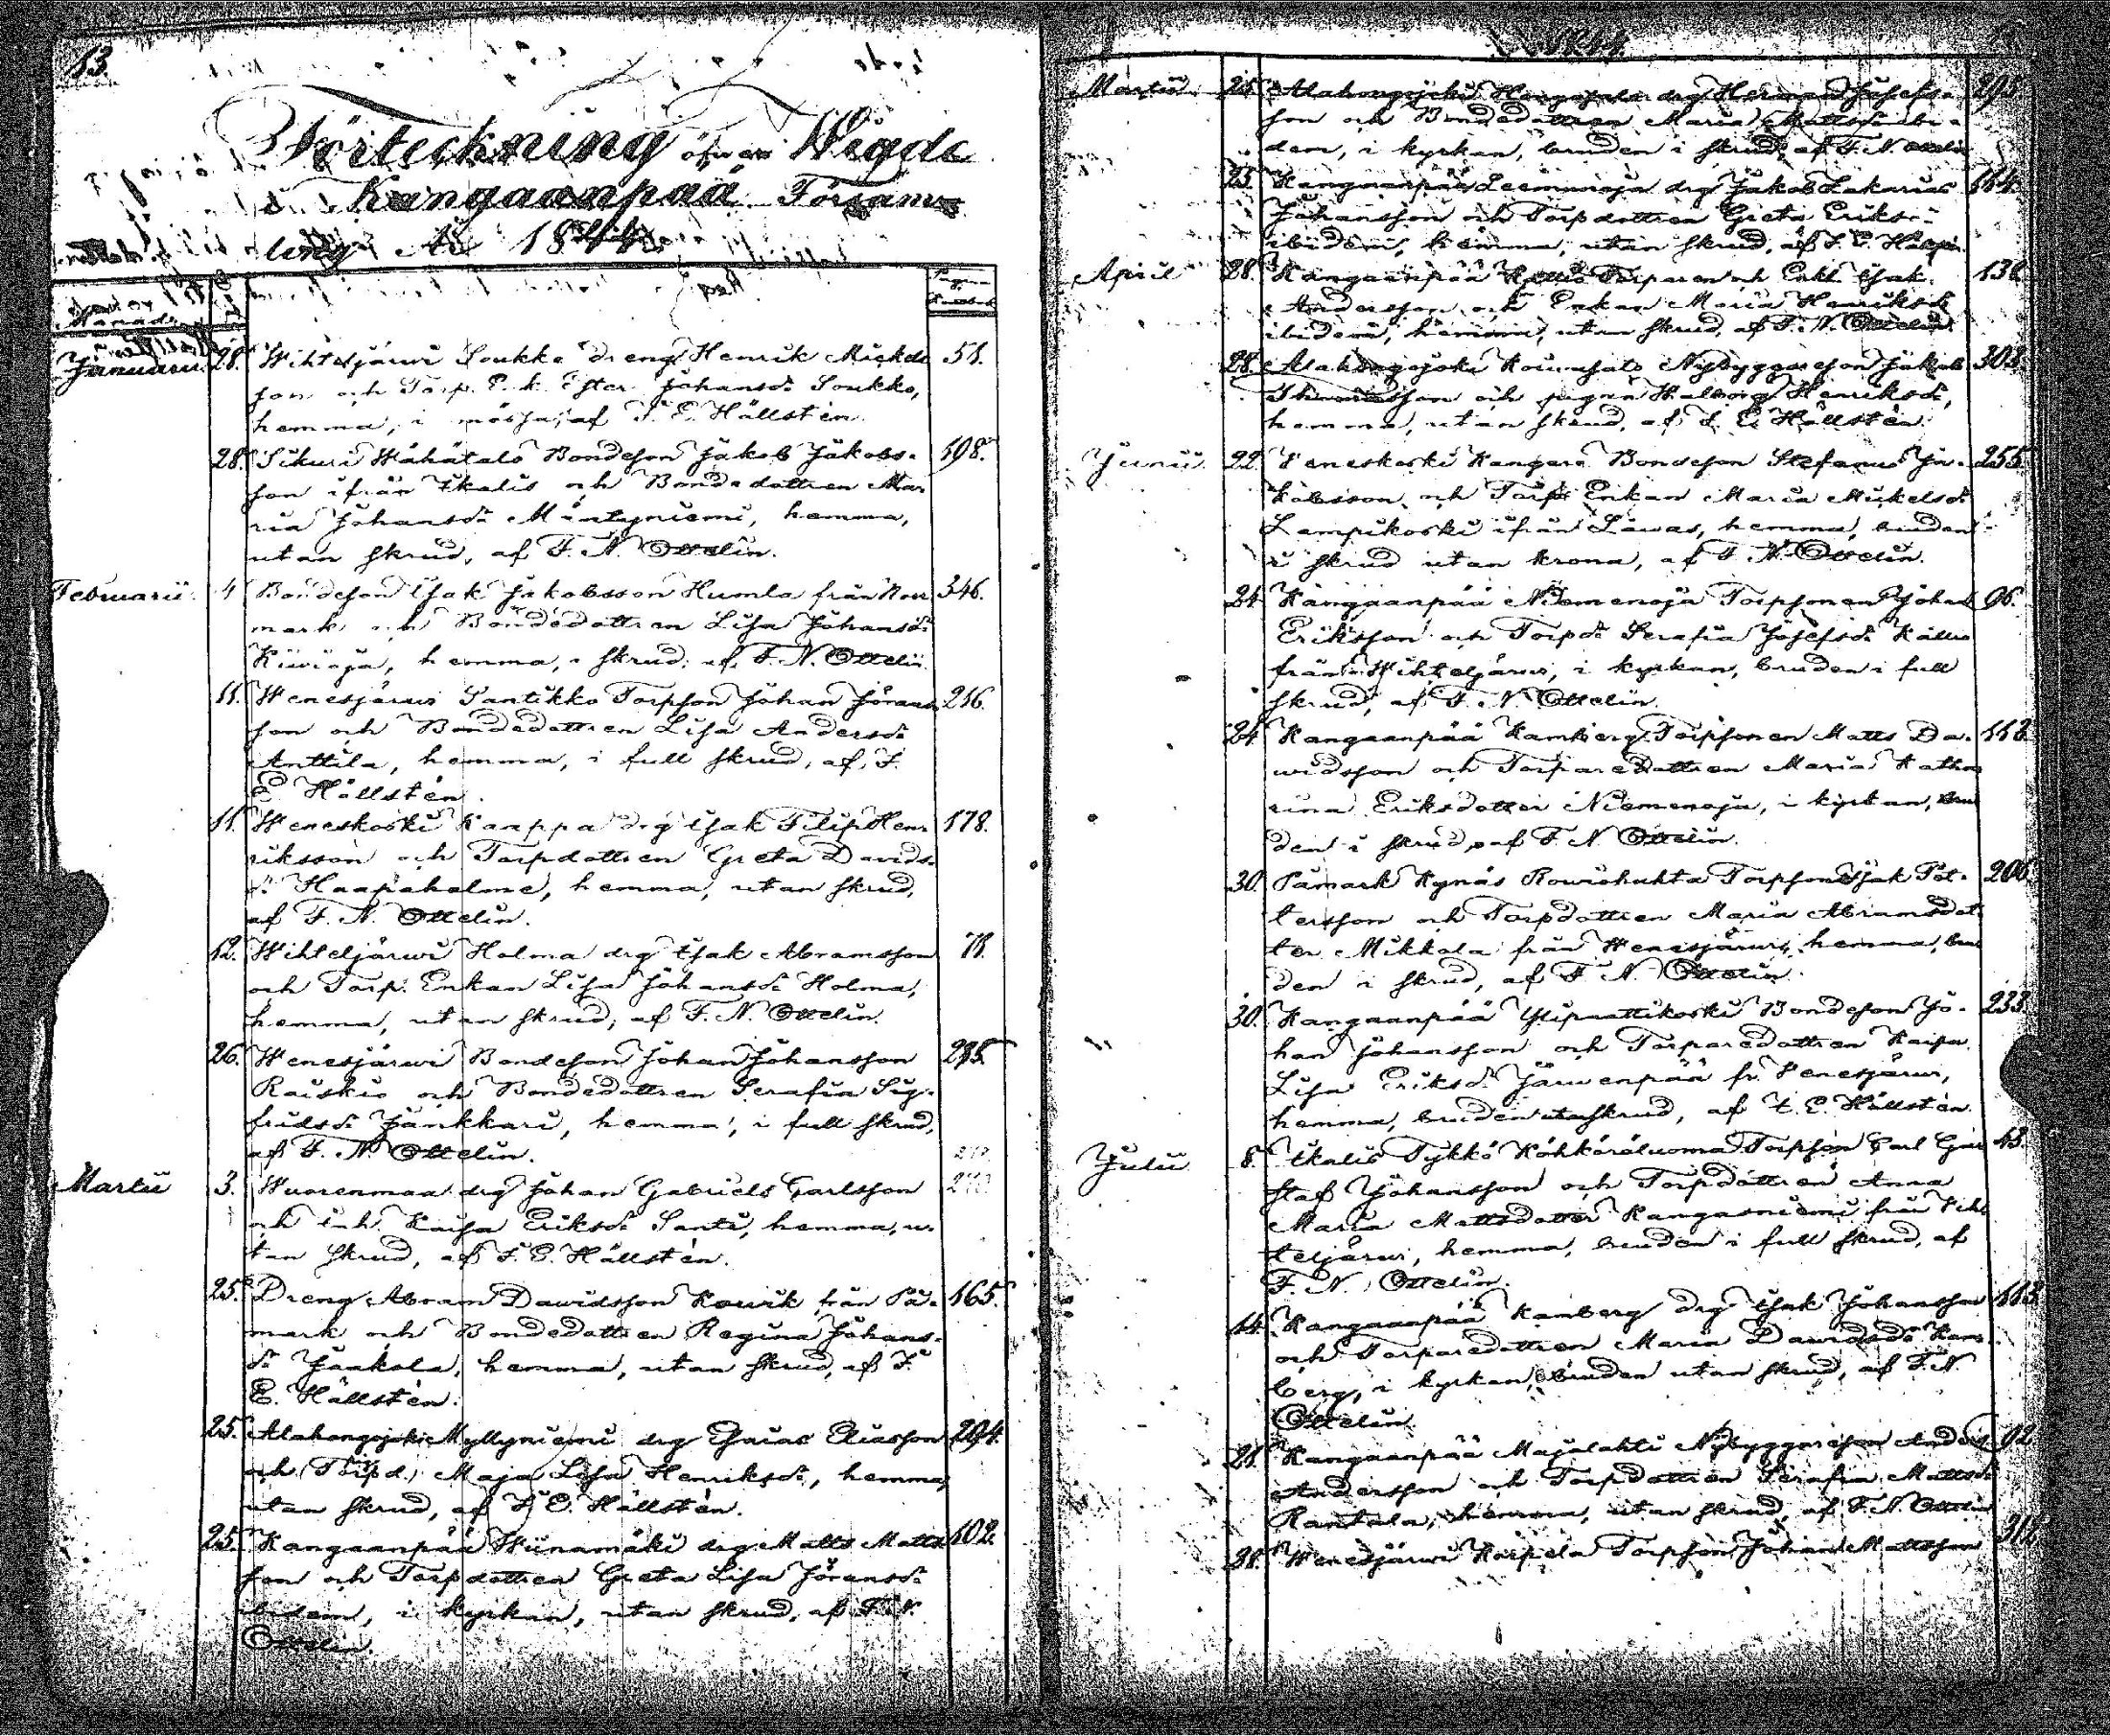 53.
Förteckning öfver Wigde
i Kangaanpää Församl
ling År 1844
Månad.
Januarii. 28. Wihteljärwi Soukko dreng Henrik Mickels 51.
son och Torp. E. k. Ester Johansd:r Soukko,
hemma, i mössa, af F. E. Hällstén.
28. Sikuri Wähätalo Bondeson Jakob Jakobs- 198.
son ifrån Ikalis och Bondedottren Ma-
ria Johansd:r Mäntyniemi, hemma,
utan skrud, af F. N. Ottelin.
Februarii. 4 Bondeson Isak Jakobsson Humla från Norr 346.
mark och Bondedottren Lisa Johansd:r
Kiwioja, hemma, i skrud, af F. N. Ottelin.
11. Wenesjärwi Santikko Torpson Johan Jörans 216.
son och Bondedottren Lisa Andersd:r
Anttila, hemma, i full skrud, af F.
E. Hällstén.
11. Weneskoski Kaappa drg Isak Filip Hen- 178.
riksson och Torpdottren Greta Davids-
d:r Haapaholme, hemma, utan skrud,
af F. N. Ottelin.
12. Wihteljärwi Holma drg Isak Abramsson 71.
och Torp. Enkan Lisa Johansd:r Holma,
hemma, utan skrud, af F. N. Ottelin.
26. Wenesjärwi Bondeson Johan Johansson 235.
Raiskio och Bondedottren Serafia Sig-
fridsd:r Jänkkäri, hemma, i full skrud,
af F. N. Ottelin.
Martii 3. Wuorenmaa drg Johan Gabriels Carlsson
och inh. Kaisa Eriksd:r Santi, hemma, u-
tan skrud, af F. E. Hällstén.
25. Dreng Abram Dawidsson Kowik från På- 165.
mark och Bondedottren Regina Johans-
d:r Jaakola, hemma, utan skrud, af F.
E. Hällstén.
25. Alahongojoki Myllyniemi drg Esaias Eliasson 294.
och Torpd. Maja Lisa Henriksd:r, hemma,
utan skrud, af F. E. Hällstén.
25. Kangaanpää Wiinamäki drg Matts Matts 102.
son och Torpdottren Greta Lisa Jöransd:r
ibidem, i kyrkan, utan skrud, af F. N.
Ottelin.
1844.
Martii 25. Alahongojoki drg Herman Josefs- 295.
son och Bondedottren Maria Mattsd:r ibi-
dem, i kyrkan, bruden i skrud, af F. N. Ottelin
25. Kangaanpää Leeminoja drg Jakob Zakarias 114.
Johansson och Torpdottren Greta Eriksd:r
ibidem, hemma, utan skrud, af F. E. Hällstén
April 28. Kangaanpää Torparen och Enkl. Isak 136.
Andersson och Enkan Maria Henriksd:r
ibidem, hemma, utan skrud, af F. N. Ottelin.
28. Alahongojoki Koiwusalo Nybyggareson Jakob 303.
Thomasson och pigan Walborg Henriksd:r,
hemma, utan skrud, af F. E. Hällstén.
Junii. 22. Weneskoski Kangars Bondeson Stefanus Ja- 255.
kobsson och Torp. Enkan Maria Mickelsd:r
Lampikoski ifrån Lawas, hemma, bruden
i skrud utan krona, af F. N. Ottelin.
24. Kangaanpää Niemenoja Torpsonen Johan 96.
Eriksson och Torpd:r Serafia Josefsd:r Kallio
från Wihteljärwi, i kyrkan, bruden i full
skrud, af F. N. Ottelin.
24. Kangaanpää Kamberg Torpsonen Matts Da- 113.
widsson och Torparedottren Maria Katha
rina Eriksdotter Niemenoja, i kyrkan, bru
den i skrud, af F. N. Ottelin.
30. Påmark Kynäs Rowiohuhta Torpson Isak Pet- 206.
tersson och Torpdottren Maria Abramsdot
ter Mikkola från Wenesjärwi, hemma, bru
den i skrud, af F. N. Ottelin.
30. Kangaanpää Ylipaattikoski Bondeson Jo- 233.
han Johansson och Torparedottren Kaisa
Lisa Eriksd:r Järwenpää fr. Wenesjärwi,
hemma, bruden utan skrud, af F. E. Hällstén.
Julii 8. Ikalis Tykkö Köhköräluoma Torpson Carl Gus 43.
staf Johansson och Torpdottren Anna
Maria Mattsdotter Kangasniemi från Wih
teljärwi, hemma, bruden i full skrud, af
F. N. Ottelin.
14. Kangaanpää Kamberg drg Isak Johansson 113.
och Torparedottren Maria Dawidsd:r Kam-
berg, i kyrkan, bruden utan skrud, af F. N.
Ottelin.
21. Kangaanpää Majalahti Nybyggareson Anders 92.
Andersson och Torpdottren Serafia Mattsd:r
Rantala, hemma, utan skrud, af F. N. Ottelin
Wenesjärwi Koipela Torpson Johan Mattsson